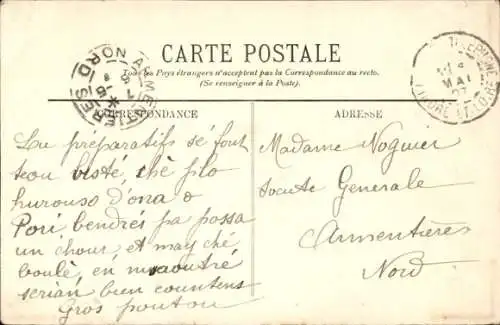 CARTE POSTALE
Tous les Pays étrangers n'acceptent pas la Correspondance au recto.
(Se renseigner à la Poste).
CORRESPONDANCE
Lou préparatifs sé fout
teou bisté, ché plo
hurouso d'ona o
Pori bendrés pa possa
un chour et may ché
boulè, én
serian bien countens
Gros poutou
ADRESSE
Madame Noguier
Socute Generale
Armentières
Nord
MAI
07